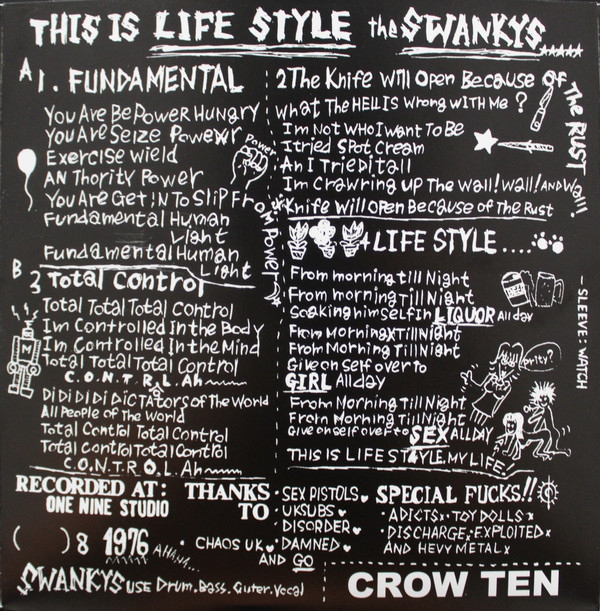 THIS IS LIFE STYLE the SWANKYS.....
A 1. FUNDAMENTAL
You Are Be Power Hungry
You Are Seize Powewr
Exercise wield
AN Thority Power
You Are Get !N To Slip From Power
Fundamental Human
Light
Fundamental Human
Light
Power
B 3 Total Control
Total Total Total Control
Im Controlled In the Body
Im Controlled In the Mind
Total Total Total Control
C.O.N.T.R.O.L. Ah
Di Di Di Di Dictators of The World
All People of The World
Total Control Total Control
Total Control Total Control
C.O.N.T.R.O.L. Ah
2 The Knife Will Open Because of The RUST
What The HELL IS Wrong with Me ?
Im Not Who I Want To Be
I tried Spot Cream
An I Tried it all
Im Crawring up The Wall! Wall! AND Wall!
Knife Will Open Because of The Rust
4 LIFE STYLE....
From morning till Night
From morning Till Night
Soaking himself in LIQUOR All day
From Morning X Till Night
From Morning Till Night
Give on self over to
GIRL All day
From Morning Till Night
From Morning Till Night
Give onself over to SEX ALL DAY
THIS IS LIFE STYLE. MY LIFE!
- SLEEVE: WATCH
RECORDED AT:
ONE NINE STUDIO
( ) 8 1976 AHAHA...
THANKS TO
• SEX PISTOLS
• UK SUBS
• DISORDER
• CHAOS UK • DAMNED
AND GO
SPECIAL FUCKS!!
• ADICTS x • TOY DOLLS x
• DISCHARGE x • EXPLOITED x
AND HEVY METAL x
SWANKYS USE Drum. Bass. Guter. Vocal
CROW TEN